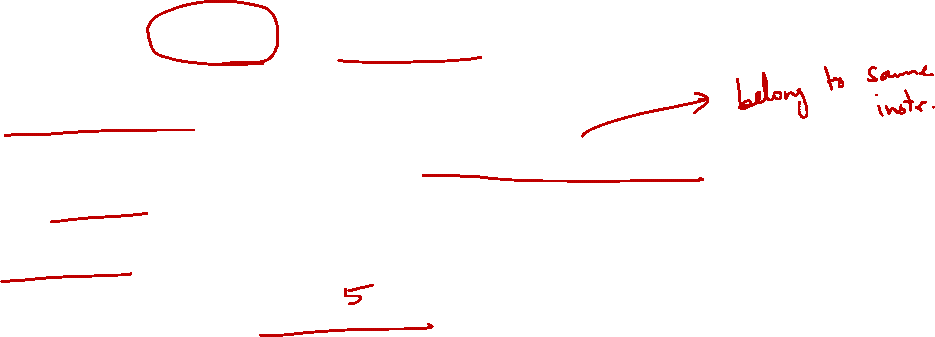 belong to same
instr.
5